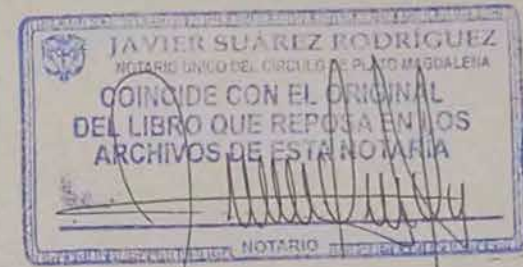 JAVIER SUÁREZ RODRÍGUEZ
NOTARIO UNICO DEL CIRCULO DE PLATO MAGDALENA
COINCIDE CON EL ORIGINAL
DEL LIBRO QUE REPOSA EN LOS
ARCHIVOS DE ESTA NOTARIA
NOTARIO